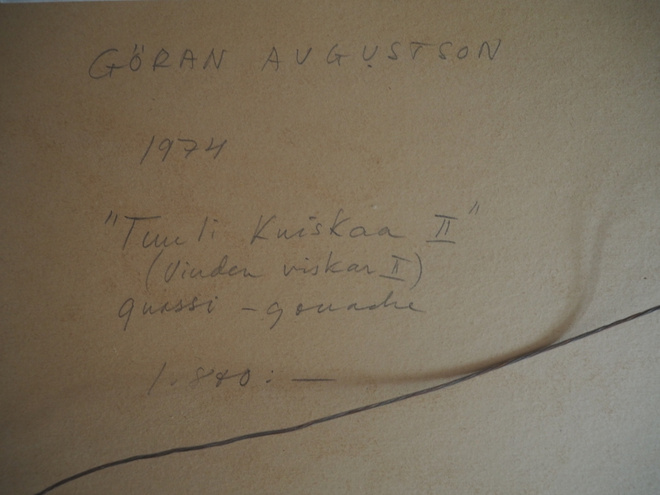 GÖRAN AUGUSTSON
1974
"Tuuli Kuiskaa II"
(Vinden viskar II)
guassi - gouache
1.840:—